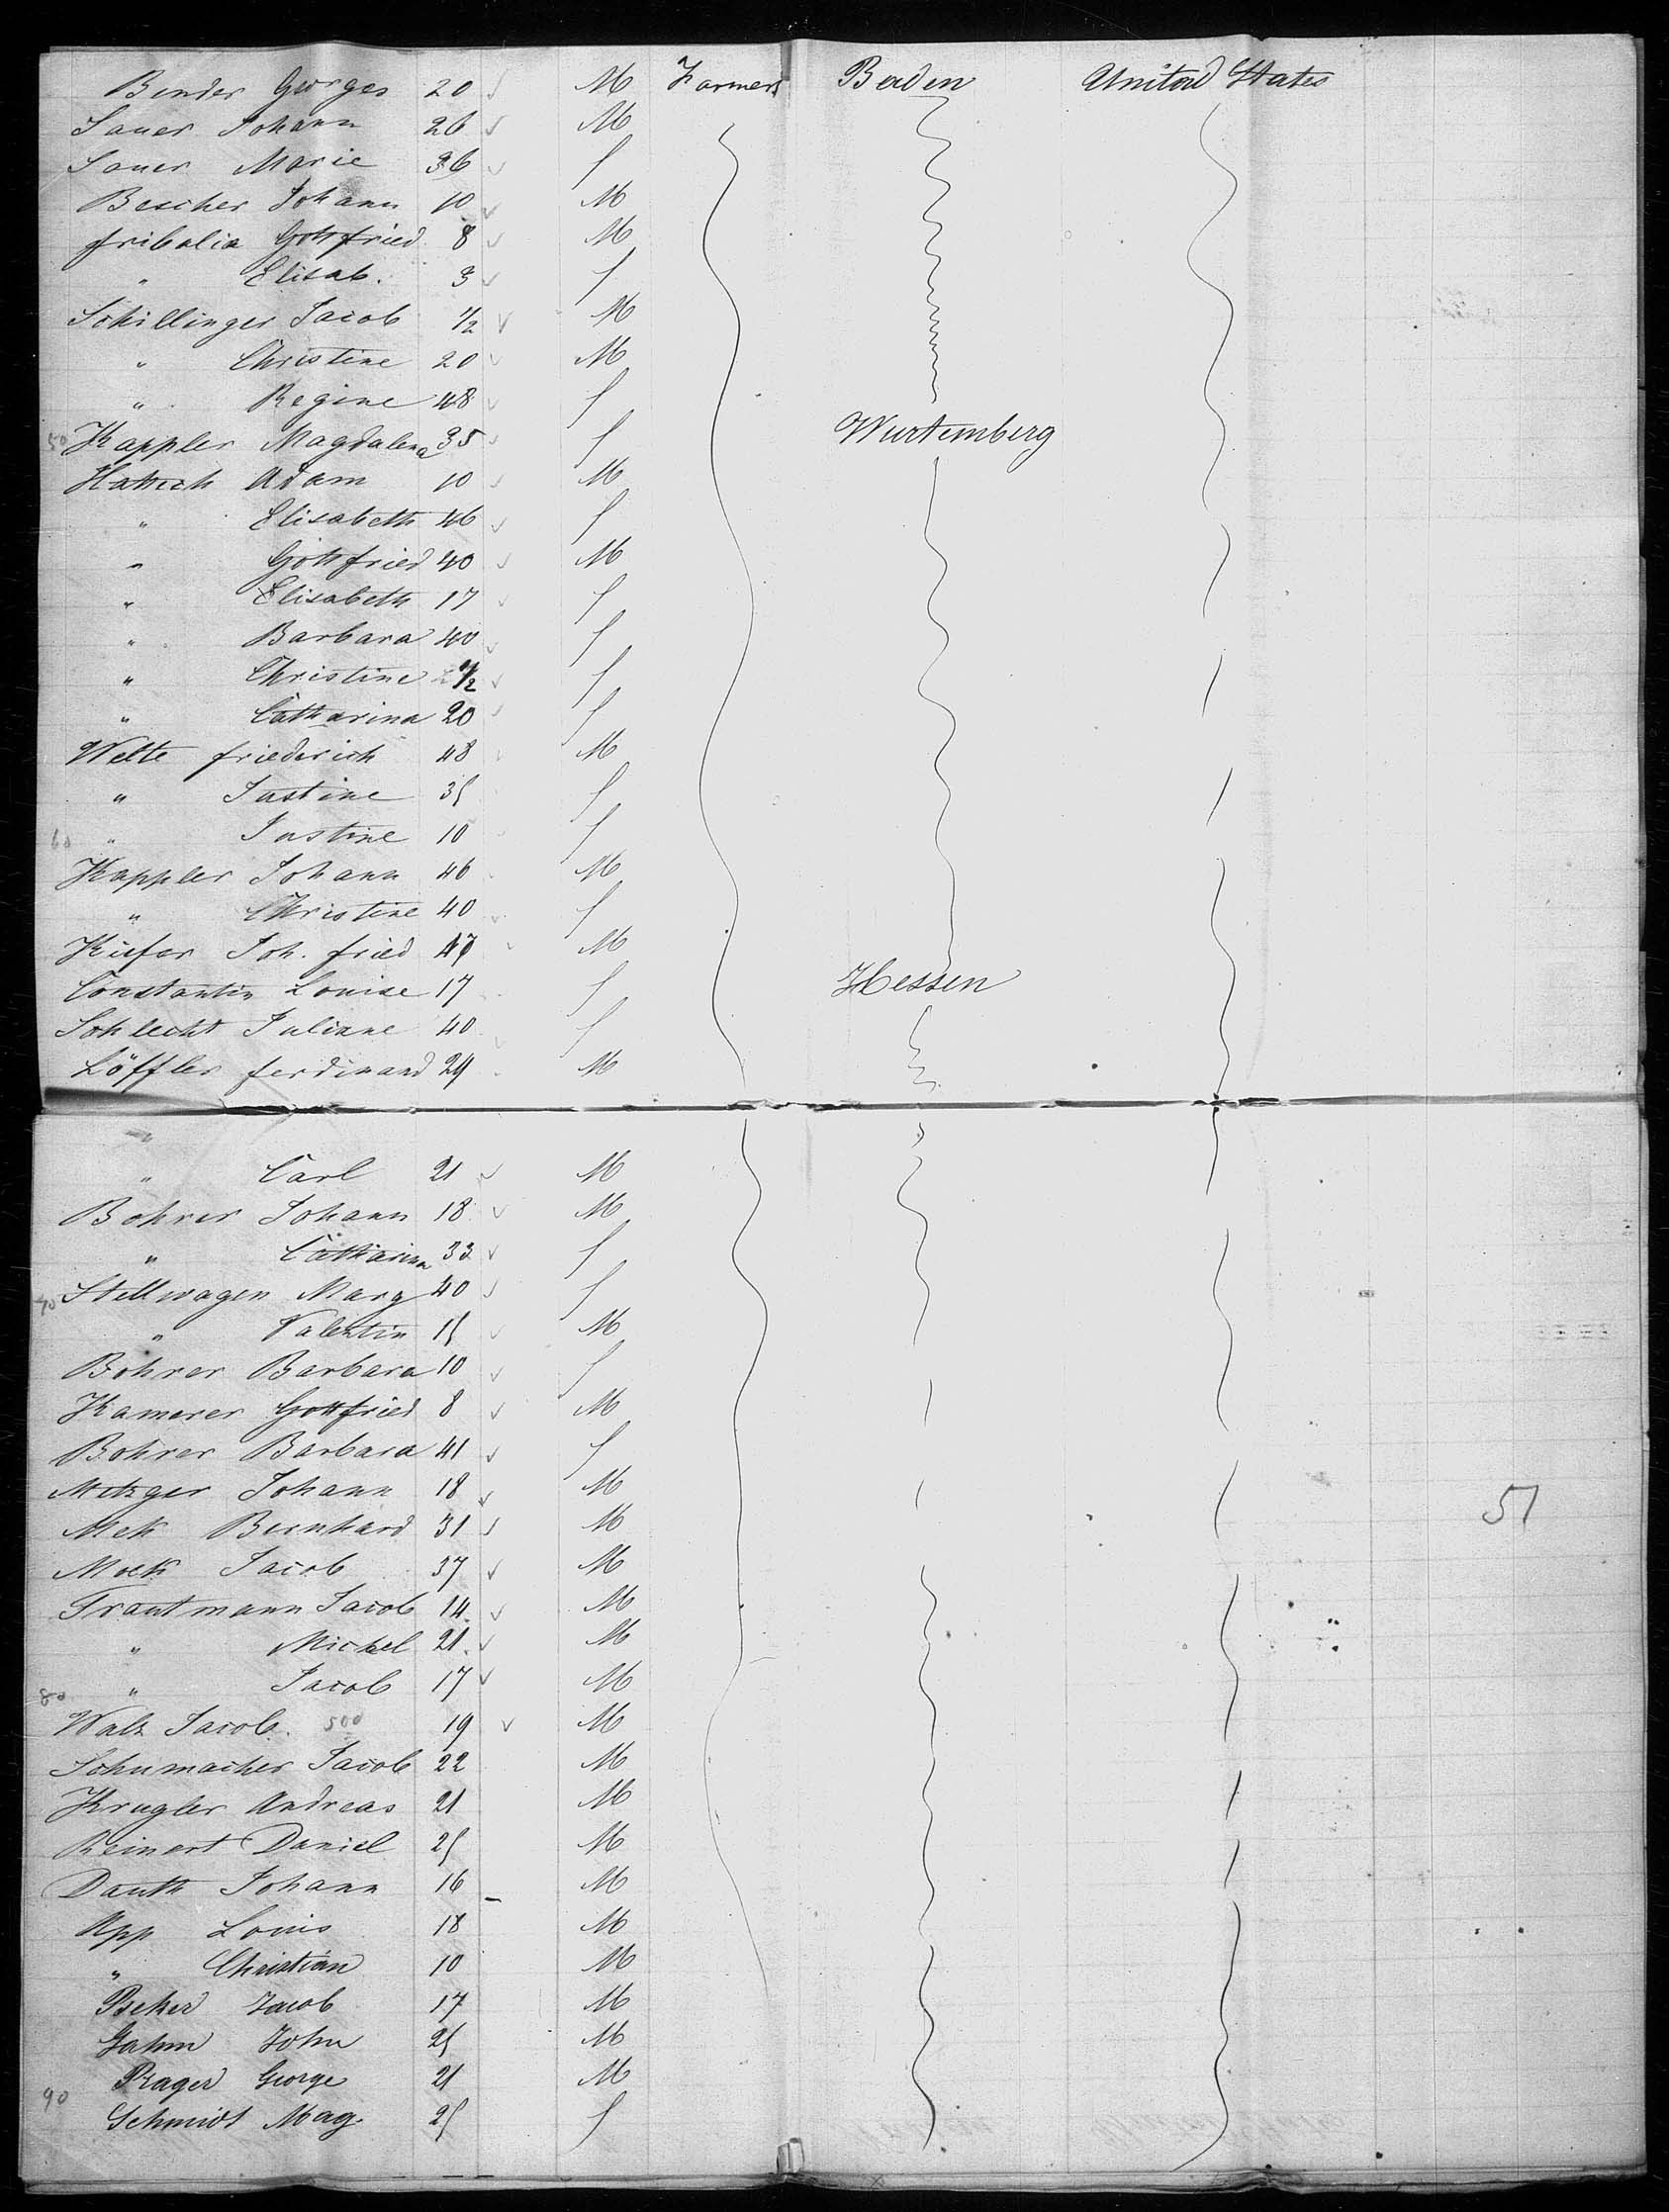 Bender Georges 20 M Farmers Baden United States
Sauer Johann 26 M
Sauer Marie 36 f
Bescher Johann 10 M
fribolin Gottfried 8 M
" Elisab. 3 f
Schillinger Jacob 1/2 M
" Christine 20 M
" Regine 48 f
50 Kappler Magdalena 35 f Wurtemberg
Hattich Adam 10 M
" Elisabeth 46 f
" Gottfried 40 M
" Elisabeth 17 f
" Barbara 40 f
" Christine 1/2 f
" Catharina 20 f
Welte friederich 48 M
" Justine 35 f
60 " Justine 10 f
Kappler Johann 46 M
" Christine 40 f
Kiefer Joh. fried 47 M
Constantin Louise 17 f Hessen
Schlecht Juliane 40 f
Löffler ferdinand 29 M
" Carl 21 M
Bohrer Johann 18 M
" Catharina 33 f
70 Stellwagen Marg 40 f
" Valentin 15 M
Bohrer Barbara 10 f
Kamerer Gottfried 8 M
Bohrer Barbara 41 f
Metzger Johann 18 M
Mek Bernhard 31 M
Moek Jacob 37 M
Trautmann Jacob 14 M
" Michel 21 M
80 " Jacob 17 M
Walz Jacob. 500 19 M
Schumacher Jacob 22 M
Krugler Andreas 21 M
Reinert Daniel 25 M
Dauth Johann 16 M
App Louis 18 M
" Christian 10 M
Beker Jacob 17 M
Gahm John 25 M
Prager George 21 M
90 Schmidt Mag. 25 f
51